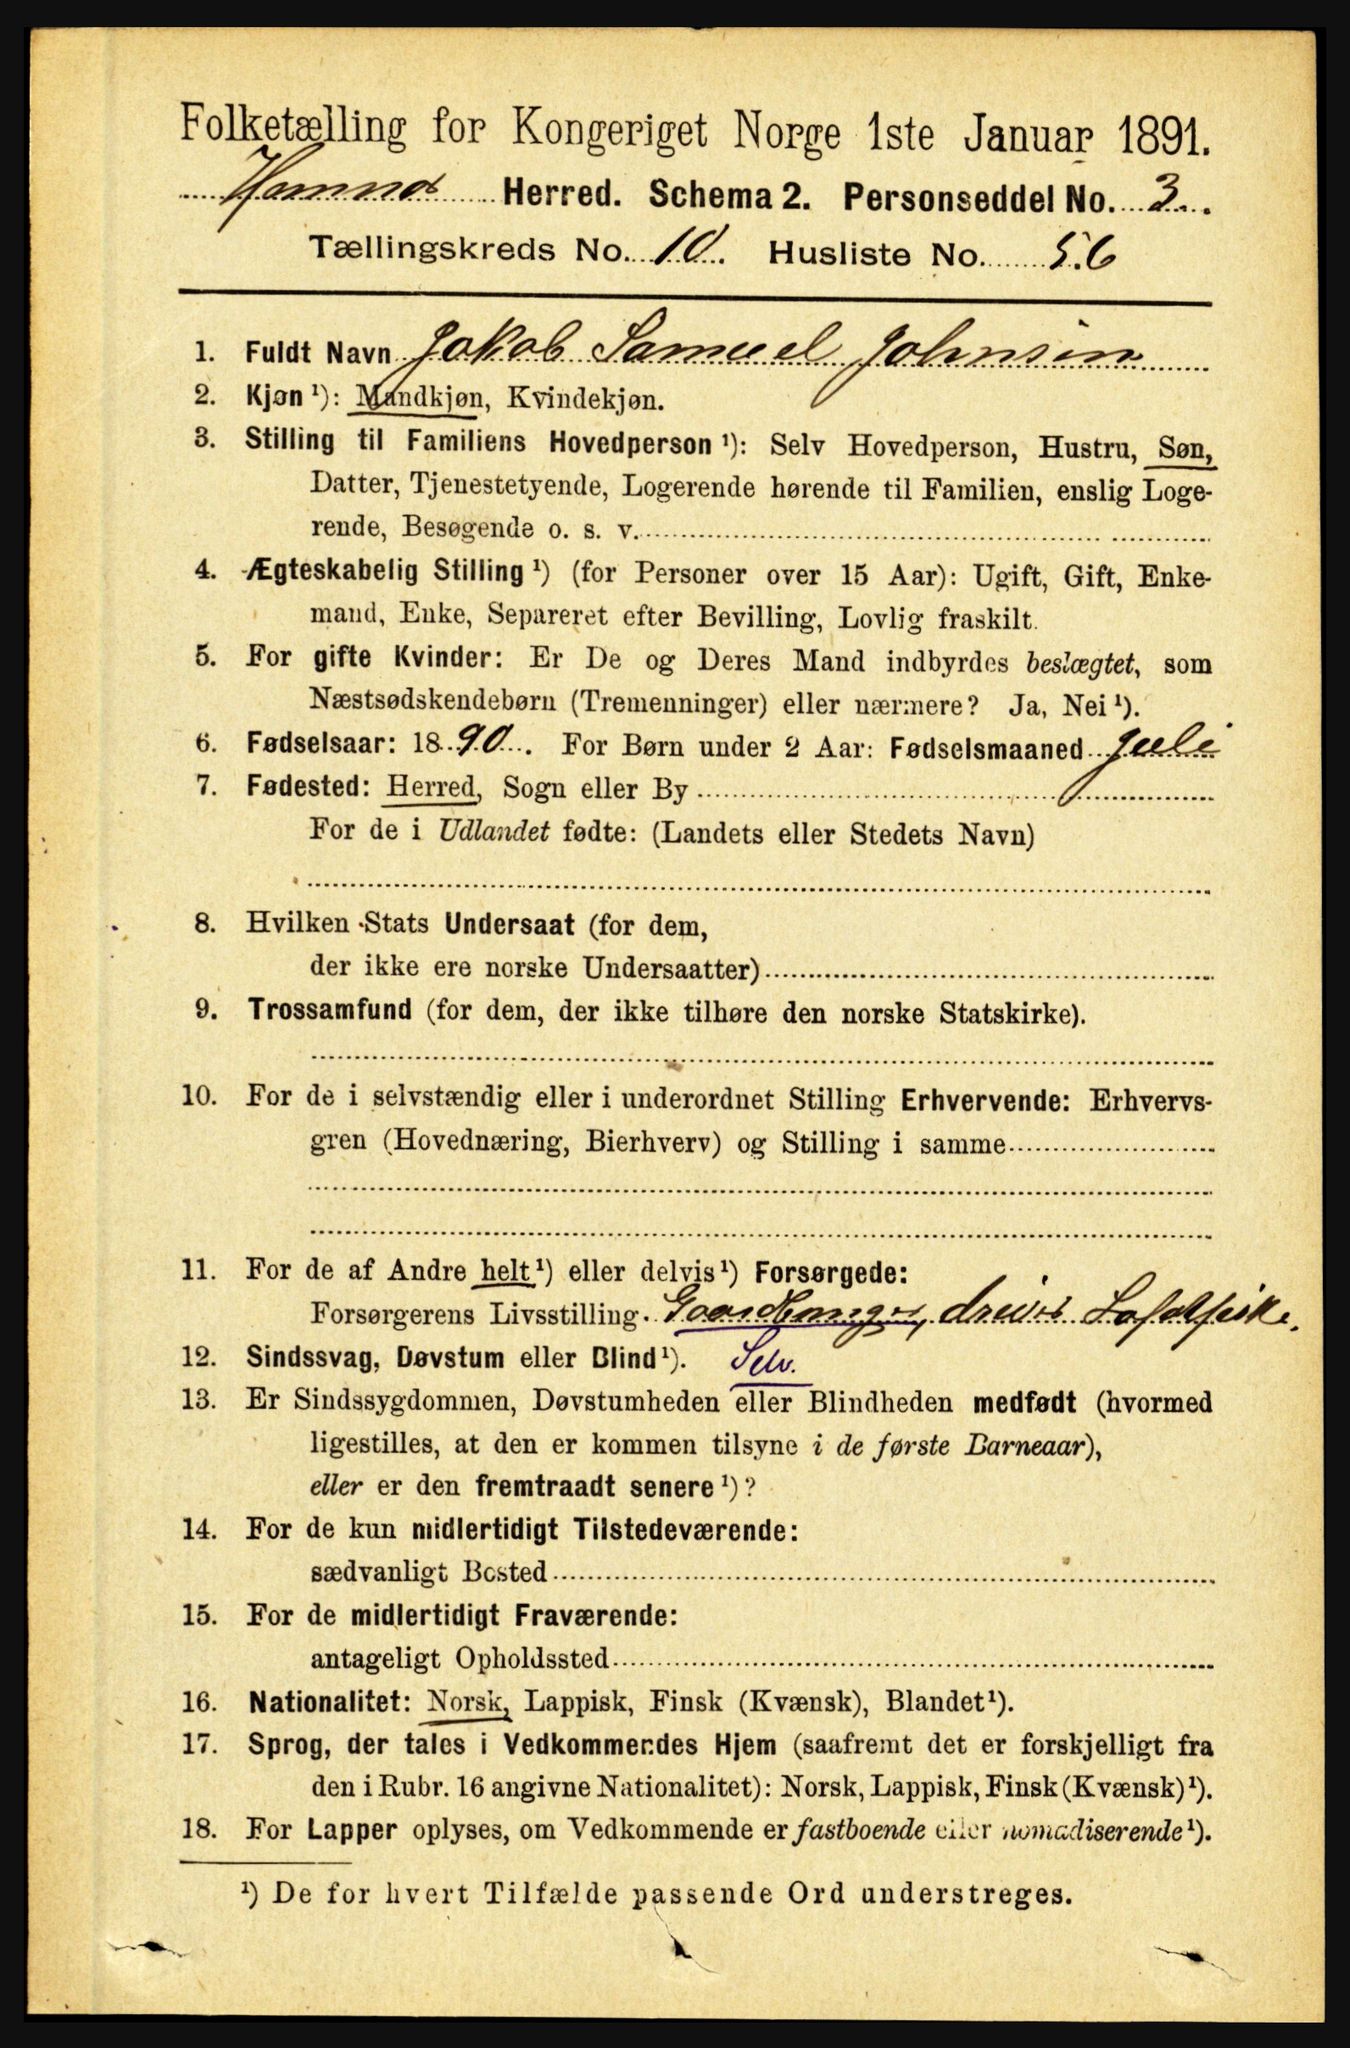 Folketælling for Kongeriget Norge 1ste Januar 1891.
Hamnø Herred. Schema 2. Personseddel No. 3.
Tællingskreds No. 10. Husliste No. 56
1. Fuldt Navn Jakob Samuel Johnsen
2. Kjøn ¹): Mandkjøn, Kvindekjøn.
3. Stilling til Familiens Hovedperson ¹): Selv Hovedperson, Hustru, Søn,
Datter, Tjenestetyende, Logerende hørende til Familien, enslig Loge-
rende, Besøgende o. s. v.
4. Ægteskabelig Stilling ¹) (for Personer over 15 Aar): Ugift, Gift, Enke-
mand, Enke, Separeret efter Bevilling, Lovlig fraskilt.
5. For gifte Kvinder: Er De og Deres Mand indbyrdes beslægtet, som
Næstsødskendebørn (Tremenninger) eller nærmere? Ja, Nei ¹).
6. Fødselsaar: 1890. For Børn under 2 Aar: Fødselsmaaned Juli
7. Fødested: Herred, Sogn eller By
For de i Udlandet fødte: (Landets eller Stedets Navn)
8. Hvilken Stats Undersaat (for dem,
der ikke ere norske Undersaatter)
9. Trossamfund (for dem, der ikke tilhøre den norske Statskirke).
10. For de i selvstændig eller i underordnet Stilling Erhvervende: Erhvervs-
gren (Hovednæring, Bierhverv) og Stilling i samme
11. For de af Andre helt ¹) eller delvis ¹) Forsørgede:
Forsørgerens Livsstilling. Gaardbruger, driver Lofotfiske.
12. Sindssvag, Døvstum eller Blind ¹). Selv.
13. Er Sindssygdommen, Døvstumheden eller Blindheden medfødt (hvormed
ligestilles, at den er kommen tilsyne i de første Barneaar),
eller er den fremtraadt senere ¹)?
14. For de kun midlertidigt Tilstedeværende:
sædvanligt Bosted
15. For de midlertidigt Fraværende:
antageligt Opholdssted
16. Nationalitet: Norsk, Lappisk, Finsk (Kvænsk), Blandet ¹).
17. Sprog, der tales i Vedkommendes Hjem (saafremt det er forskjelligt fra
den i Rubr. 16 angivne Nationalitet): Norsk, Lappisk, Finsk (Kvænsk) ¹).
18. For Lapper oplyses, om Vedkommende er fastboende eller nomadiserende ¹).
¹) De for hvert Tilfælde passende Ord understreges.